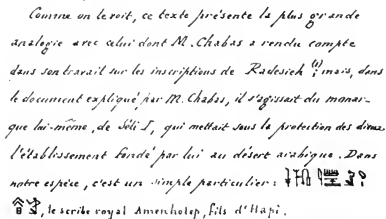 Comme on le voit, ce texte présente la plus grande
analogie avec celui dont M. Chabas a rendu compte
dans son travail sur les inscriptions de Radesieh (1); mais, dans
le document expliqué par M. Chabas, il s'agissait du monar-
que lui-même, de Séti I, qui mettait sous la protection des dieux
l'établissement fondé par lui au désert arabique. Dans
notre espèce, c'est un simple particulier:
, le scribe royal Amenhotep, fils d'Hapi.